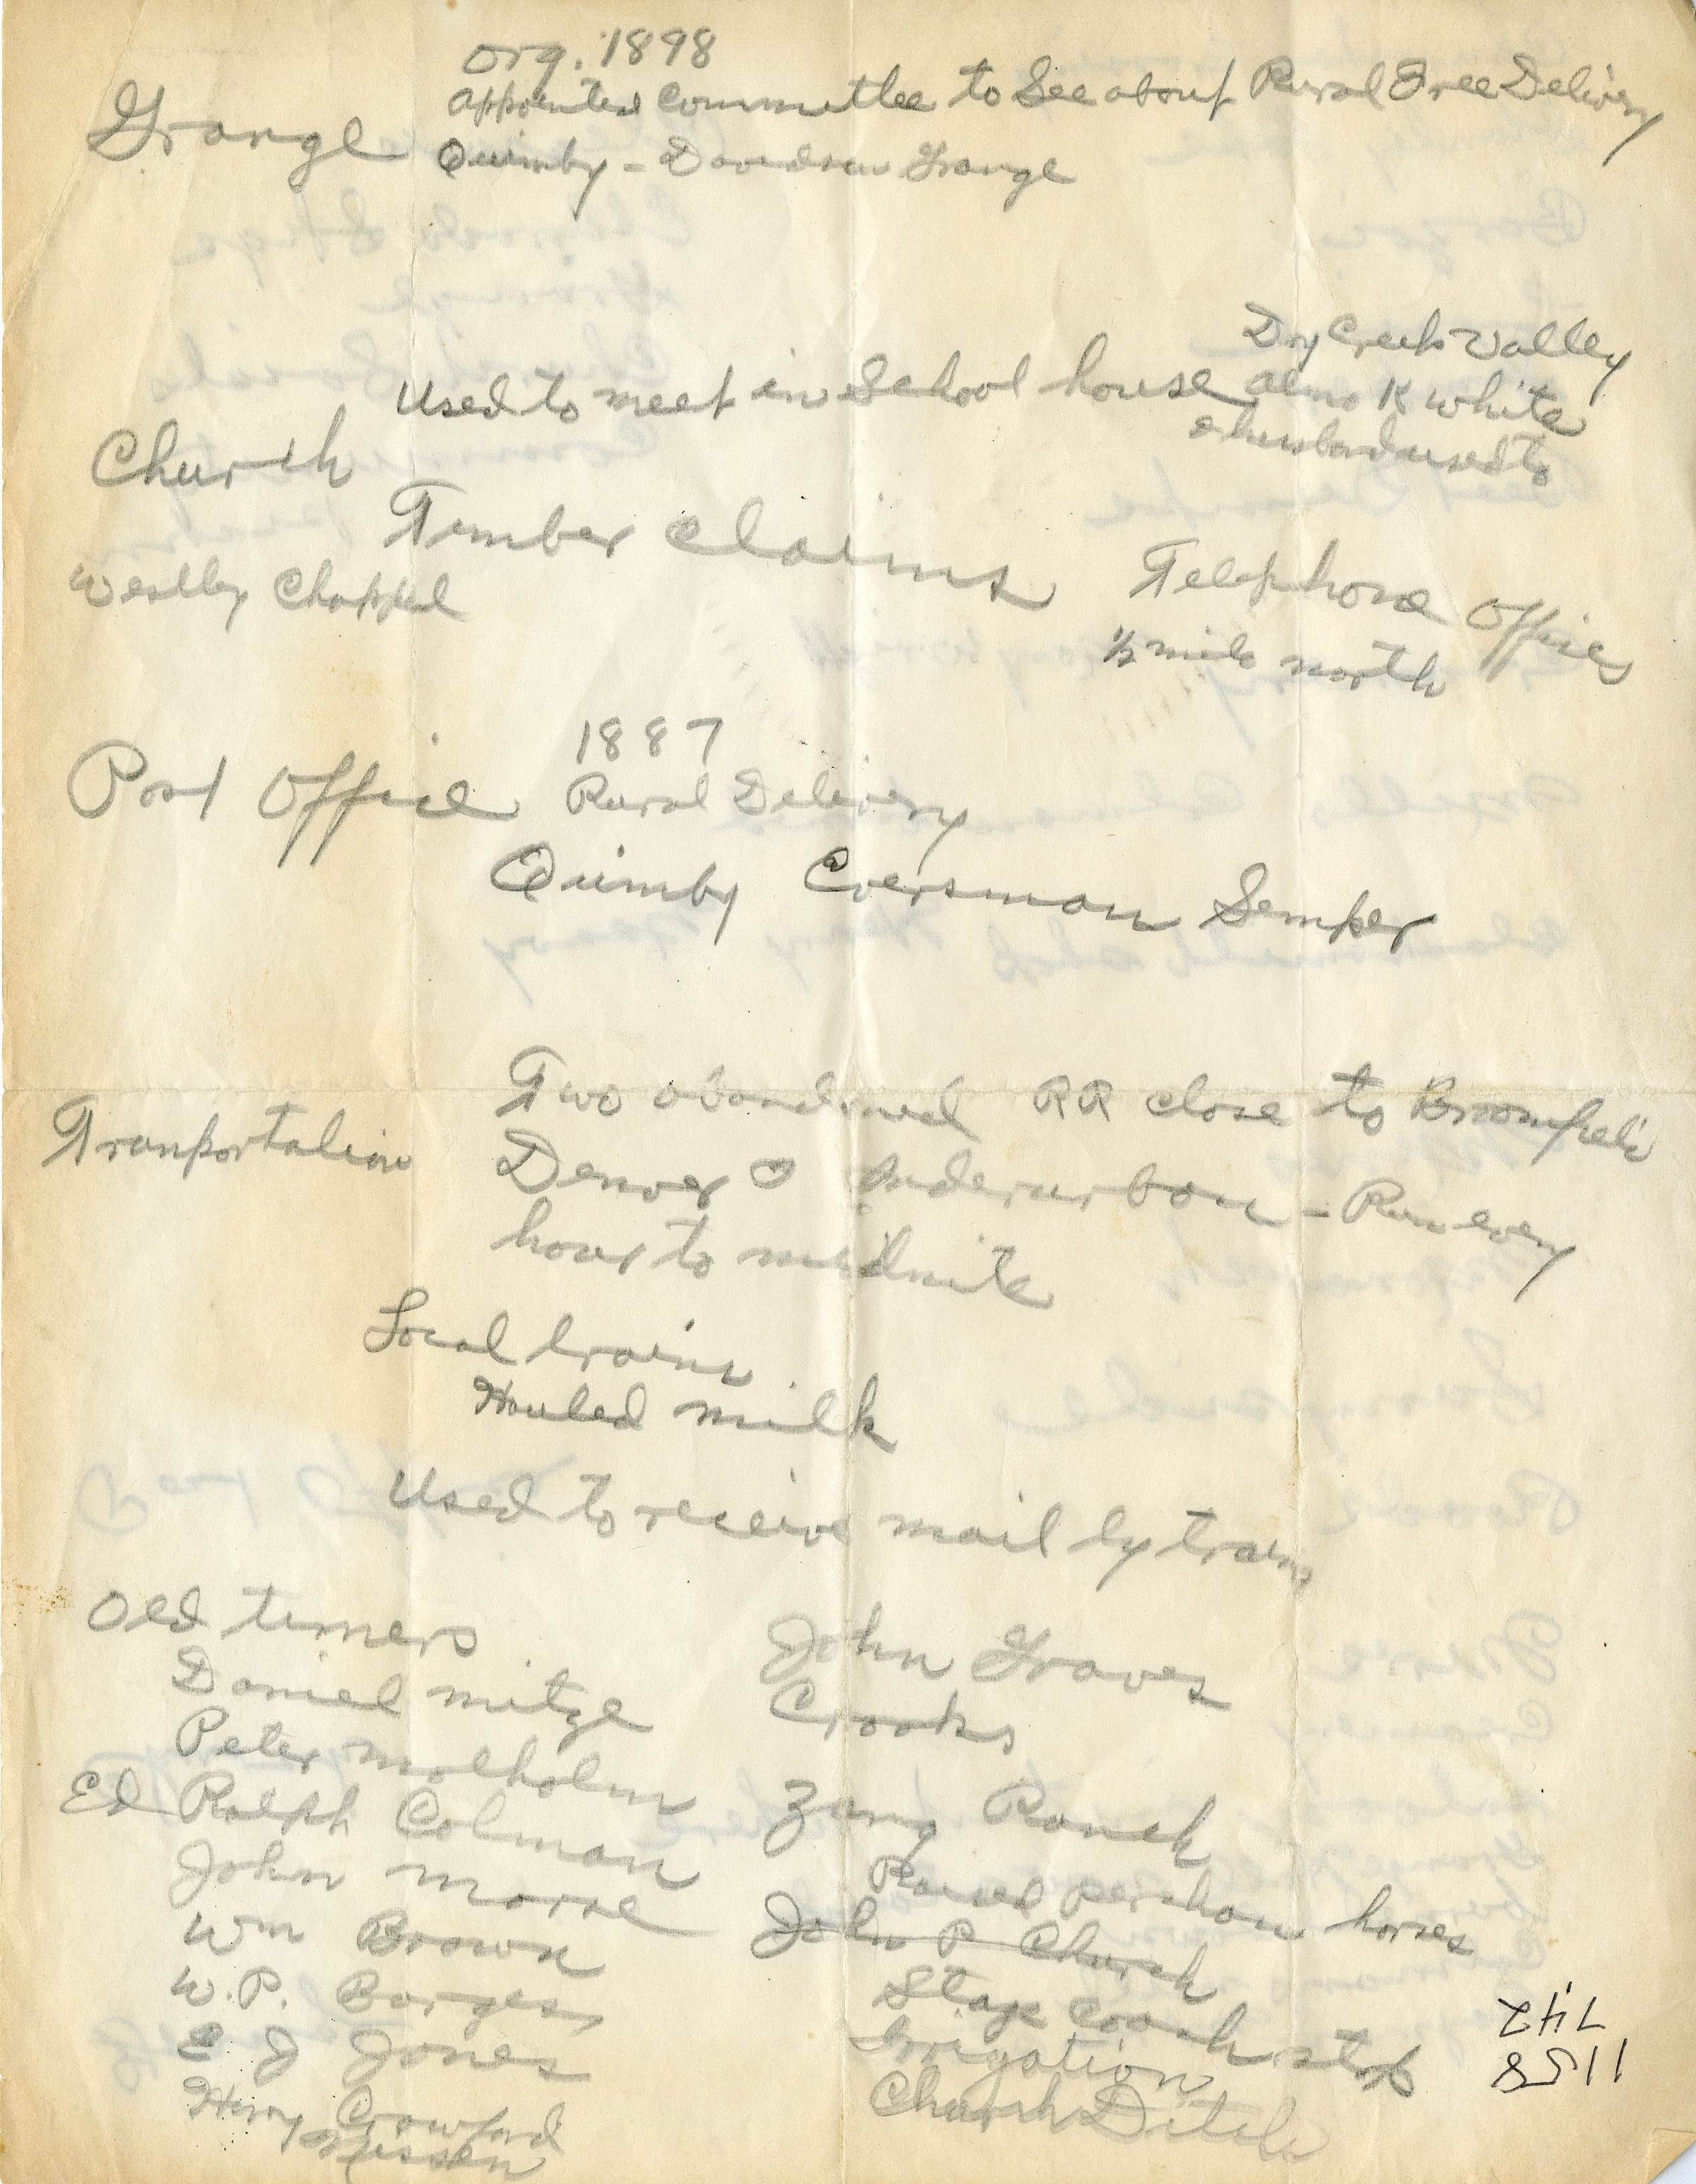 Org. 1898
Grange appointed Committee to See about Rural Free Delivery
Quimby - Davidson Grange
Dry Creek Valley
Used to meet in School house Alma K White
& husband used to
Church
Timber Claims
Westley Chappel
Telephone Offices
1/2 mile north
1887
Post Office Rural Delivery
Quimby Eversman Semper
Two abandoned RR close to Broomfield
Tranportation
Denver & Enderurban - Run every
hour to midnite
Local trains
Hauled milk
Used to receive mail by train
Old timers
Daniel Mitze
Peter Molholm
Ed Ralph Colman
John Morre
Wm Brown
W. P. Borges
E J Jones
Henry Crawford
Nissen
John Graves
Crooks
Zang Ranch
Raised percheon horses
John P Church
Stage Coach stop
Irrigation
Church Ditch
1158
742